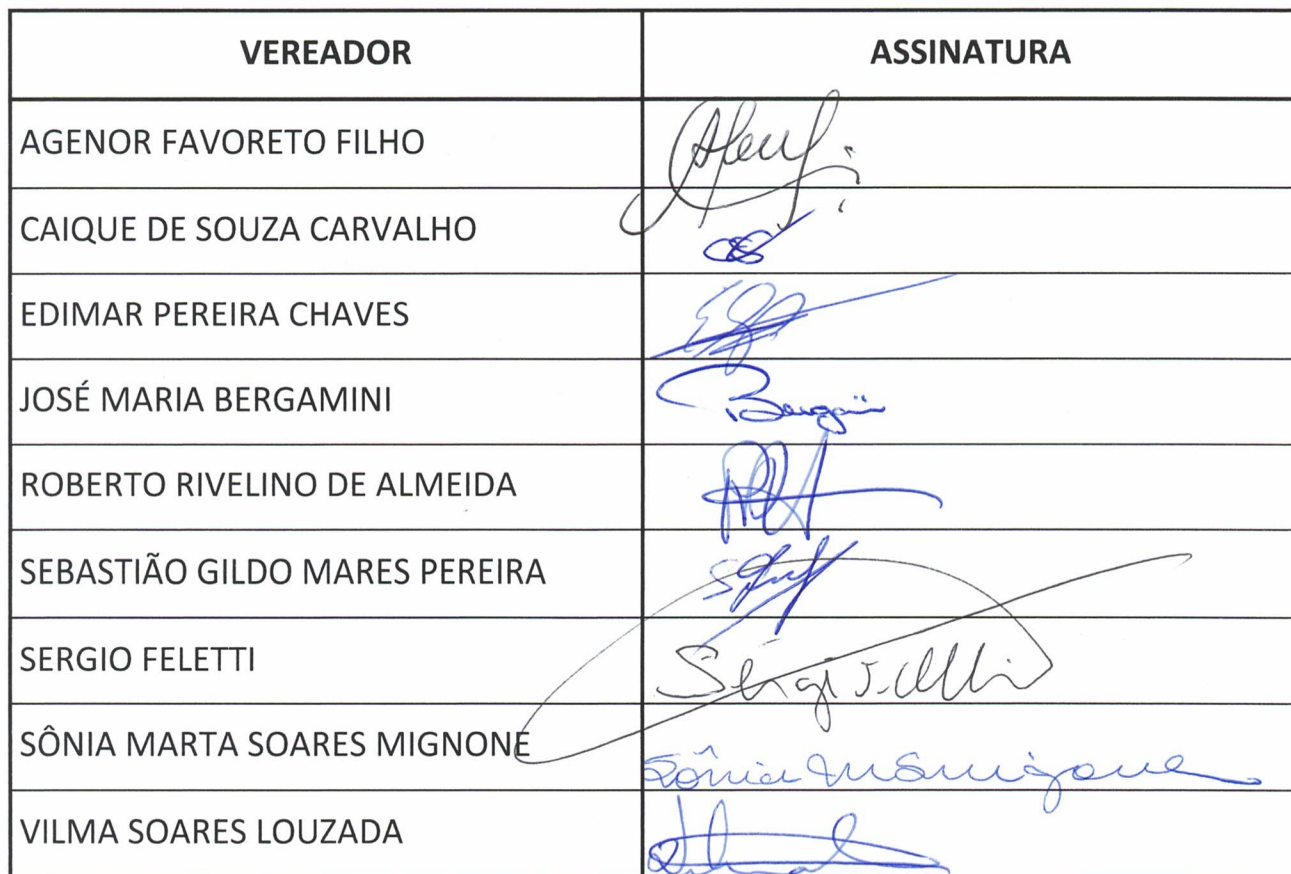 VEREADOR ASSINATURA
AGENOR FAVORETO FILHO
CAIQUE DE SOUZA CARVALHO
EDIMAR PEREIRA CHAVES
JOSÉ MARIA BERGAMINI
ROBERTO RIVELINO DE ALMEIDA
SEBASTIÃO GILDO MARES PEREIRA
SERGIO FELETTI Sérgio
SÔNIA MARTA SOARES MIGNONE Sônia
VILMA SOARES LOUZADA